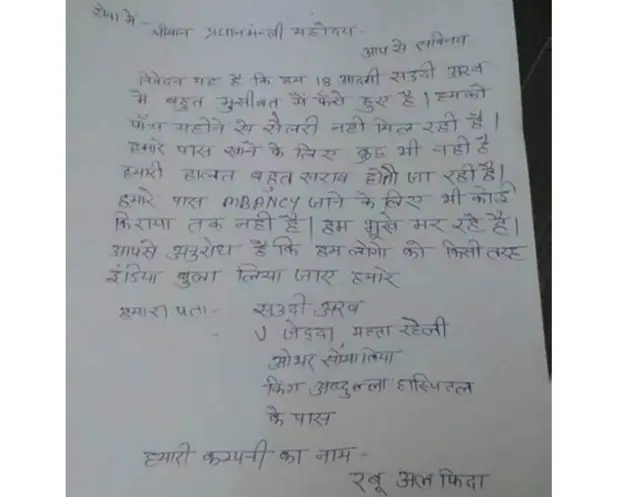 सेवा में -
श्रीमान प्रधानमन्त्री महोदय -
आप से सविनय
निवेदन यह है कि हम 18 आदमी सउदी अरब
मे बहुत मुसीबत में फँसे हुए है | हमको
पाँच महीने से सैलरी नही मिल रही है |
हमारे पास खाने के लिए कुछ भी नही है
हमारी हालत बहुत खराब होती जा रही है |
हमारे पास MBANCY जाने के लिए भी कोई
किराया तक नही है | हम भूखे मर रहे है |
आपसे अनुरोध है कि हम लोगो को किसी तरह
इंडिया बुला लिया जाए हमारे
हमारा पता - सउदी अरब
- जेद्दा, मस्ता रहेली
ओभर सोमालिया
किंग अब्दुल्ला हास्पिटल
के पास
हमारी कम्पनी का नाम -
रबू अल फिदा